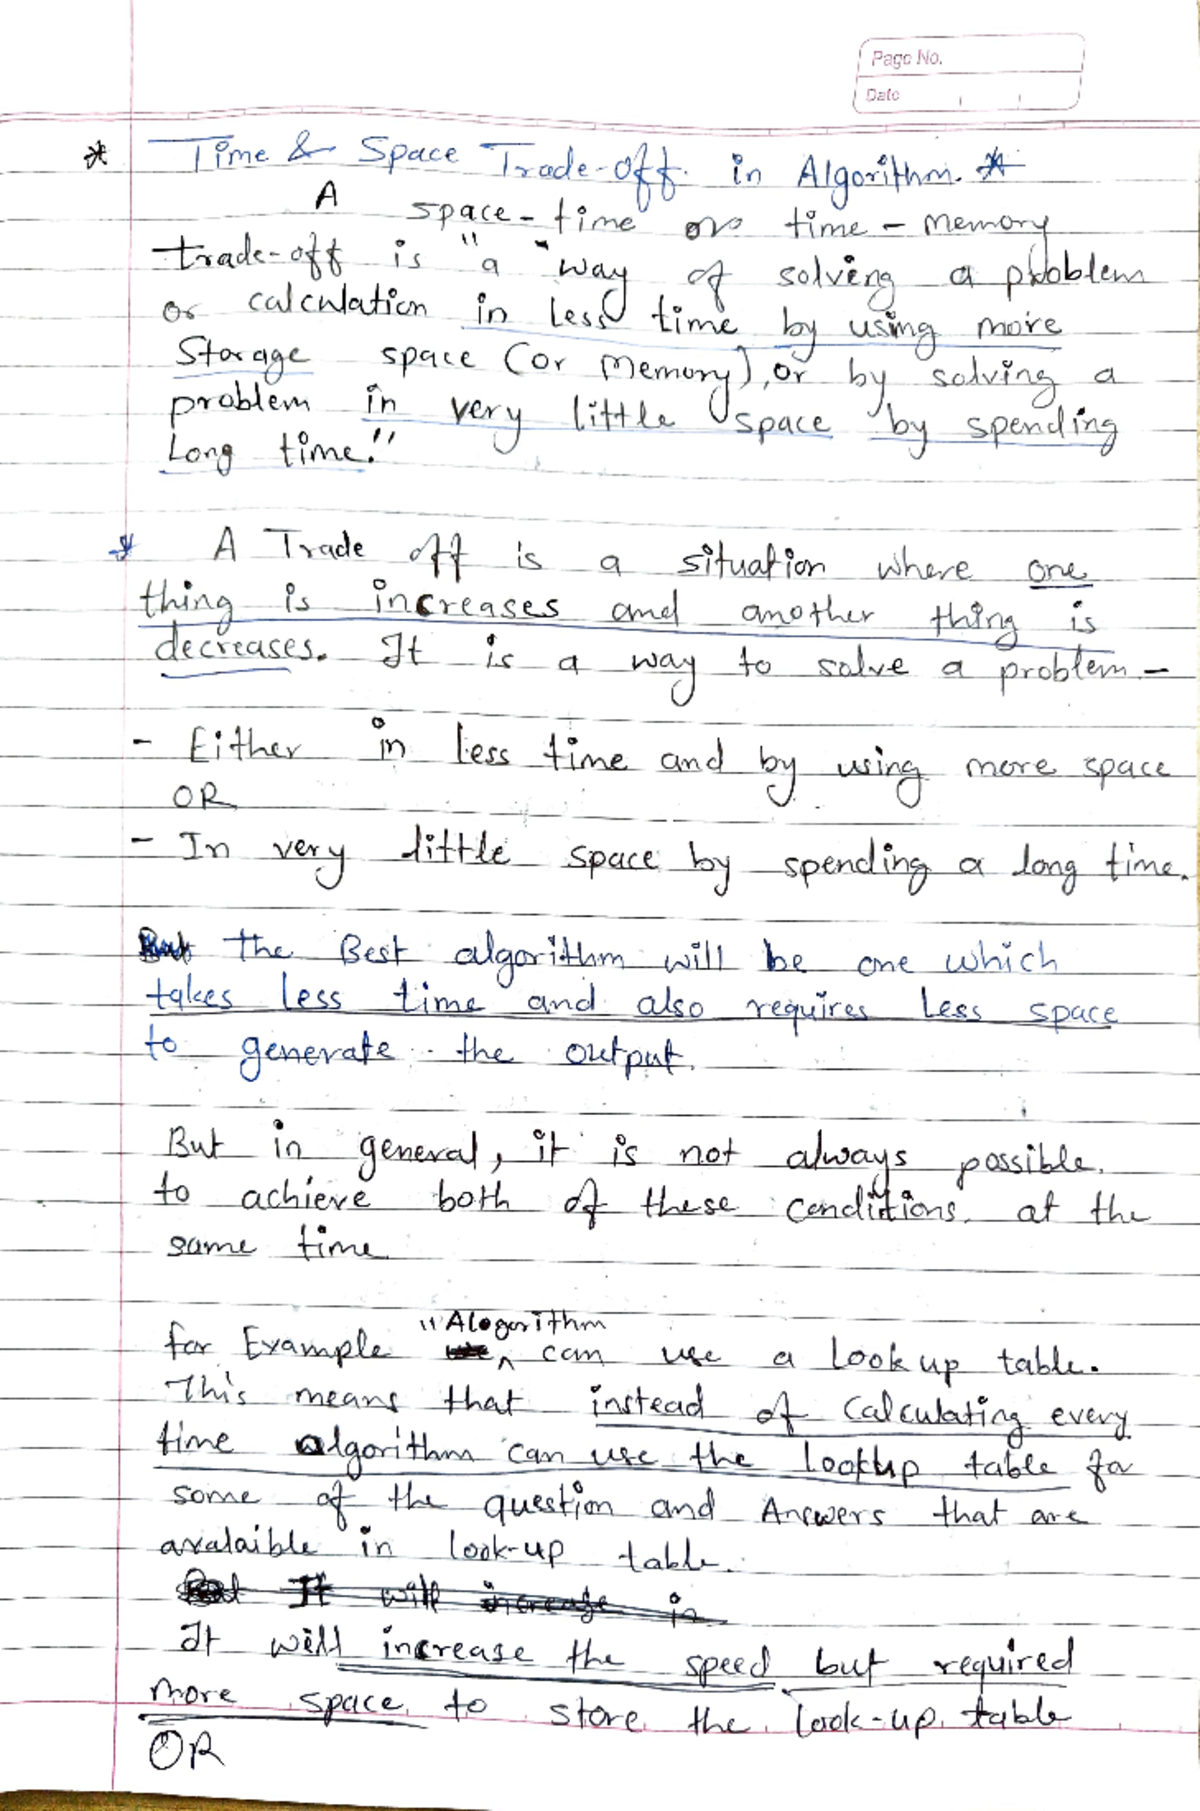 Page No.
Date
* Time & Space Trade-off in Algorithm. *
A space-time or time-memory
trade-off is "a way of solving a problem
or calculation in less time by using more
Storage space (or Memory), or by solving a
problem in very little space by spending
Long time."
* A Trade off is a situation where one
thing is increases and another thing is
decreases. It is a way to solve a problem -
- Either in less time and by using more space
OR
- In very little space by spending a long time.
the Best algorithm will be one which
takes less time and also requires less space
to generate the output.
But in general, it is not always possible.
to achieve both of these conditions. at the
same time
for Example "Alogorithm can use a Look up table.
This means that instead of calculating every
time algorithm can use the lookup table for
some of the question and Answers that are
avalaible in look-up table.
But It will increase in
It will increase the speed but required
more space to store the look-up table
OR